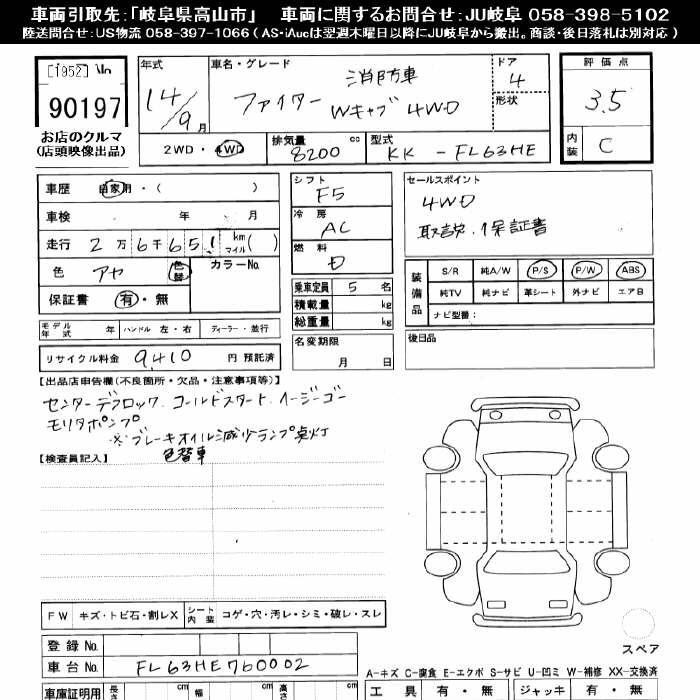 車両引取先:「岐阜県高山市」 車両に関するお問合せ:JU岐阜 058-398-5102
陸送問合せ:US物流 058-397-1066 ( AS・iAucは翌週木曜日以降にJU岐阜から搬出。商談・後日落札は別対応 )
[1952]
90197
お店のクルマ
(店頭映像出品)
年式
14/9月
車名・グレード
消防車
ファイター Wキャブ 4WD
ドア
4
形状
評価点
3.5
内装
C
2WD・4WD
排気量
8200 cc
型式
KK-FL63HE
車歴 自家用・( )
車検 年 月
走行 2万6千651 km マイル ( )
色 アカ 色替
カラーNo.
保証書 有・無
シフト
F5
冷房
AC
燃料
D
乗車定員 5 名
積載量 kg
総重量 kg
セールスポイント
4WD
取説、保証書
装備品
S/R 純A/W P/S P/W ABS
純TV 純ナビ 革シート 外ナビ エアB
ナビ型番:
モデル年式 年 ハンドル 左・右 ディーラー・並行
名変期限
月 日
後日品
リサイクル料金 9,410 円 預託済
【出品店申告欄(不良箇所・欠品・注意事項等)】
センターデフロック、コールドスタート、イージーゴー
モリタポンプ
※ブレーキオイル減少ランプ点灯
色替車
【検査員記入】
FW キズ・トビ石・割レX シート内装 コゲ・穴・汚レ・シミ・破レ・スレ
登録No.
車台No. FL63HE760002
スペア
A-キズ C-腐食 E-エクボ S-サビ U-凹ミ W-補修 XX-交換済
車庫証明用 長さ cm 幅 cm 高さ cm
工具 有・無 ジャッキ 有・無